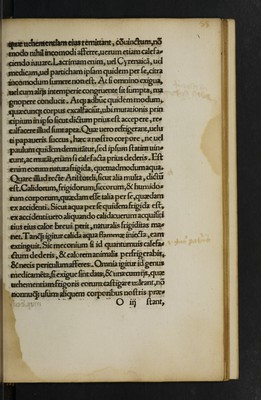 quæ uehementiam eius remittant, coniunctum, nõ
modo nihil incõmodi afferre, uerum etiam calefa-
ciendo iuuare. Lacrimam enim, uel Cyrenaicã, uel
medicam, uel parthicam ipsam quidem per se, citra
incõmodum sumere non est. At si omnino exigua,
uel cum alijs in tempore congruente sit sumpta, ma
gnopere conducit. Atqui adhũc quidem modum,
quæcunq; corpus excalfaciũt, ubi mutationis prin
cipium in ipso sicut dictum prius est accepere, re-
calfacere illud sunt apta. Quæ uero refrigerant, uelu
ti papaueris succus, hæc a nostro corpore, ne uel
paulum quidem demutãtur, sed ipsum statim uin-
cunt, ac mutãt, etiam si calefacta prius dederis. Est
enim eorum natura frigida, quemadmodum aqua.
Quare illud recte Aristoteli, sicut alia multa, dictũ
est. Calidorum, frigidorum, siccorum, & humido-
rum corporum, quædam esse talia per se, quædam
ex accidenti. Sicut aqua per se quidem frigida est,
ex accidenti uero aliquando calida: uerum acquisiti
tius eius calor breui perit, naturalis frigiditas ma-
net. Tanq̃ igitur calida aqua flammæ iniecta, eam
extinguit. Sic meconium si id quantumuis calefa-
ctum dederis, & calorem animalis perfrigerabit,
& necis periculum afferet. Omnia igitur id genus
medicamẽta, si exigue sint data, & una cum ijs, quæ
uehementiam frigoris eorum castigare ualeant, nõ
nonnunq̃ usum aliquem corporibus nostris præ-
O iij stant,